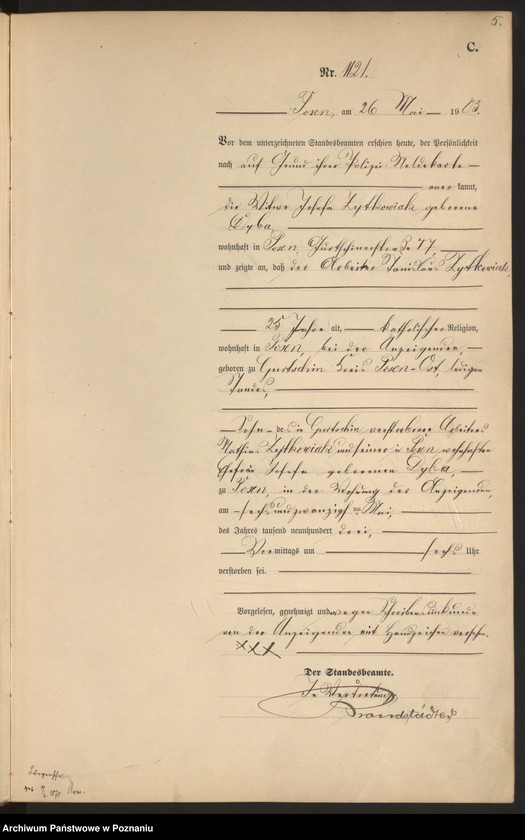 5.
C.
Nr. 1121.
Posen, am 26 Mai 1903.
Vor dem unterzeichneten Standesbeamten erschien heute, der Persönlichkeit
nach auf Grund ihrer Polizei Meldekarte
anerkannt,
die Witwe Josefa Zytkowiak geborene
Dyba,
wohnhaft in Posen, 77,
und zeigte an, daß der Arbeiter Stanislaus Zytkowiak,
25 Jahre alt, katholischer Religion,
wohnhaft in Posen, bei der Anzeigenden,
geboren zu Gurtschin Kreis Posen-Ost, ledigen
Standes,
Sohn des in Gurtschin verstorbenen Arbeiters
Zytkowiak und seiner in Posen wohnhaften
Ehefrau Josefa geborenen Dyba,
zu Posen, in der Wohnung der Anzeigenden,
am sechsundzwanzigsten Mai,
des Jahres tausend neunhundert drei,
Vormittags um sechs Uhr
verstorben sei.
Vorgelesen, genehmigt und wegen Schreibensunkunde
von der Anzeigenden mit Handzeichen versehen.
XXX
Der Standesbeamte.
In Vertretung
Brandstädter
Archiwum Państwowe w Poznaniu